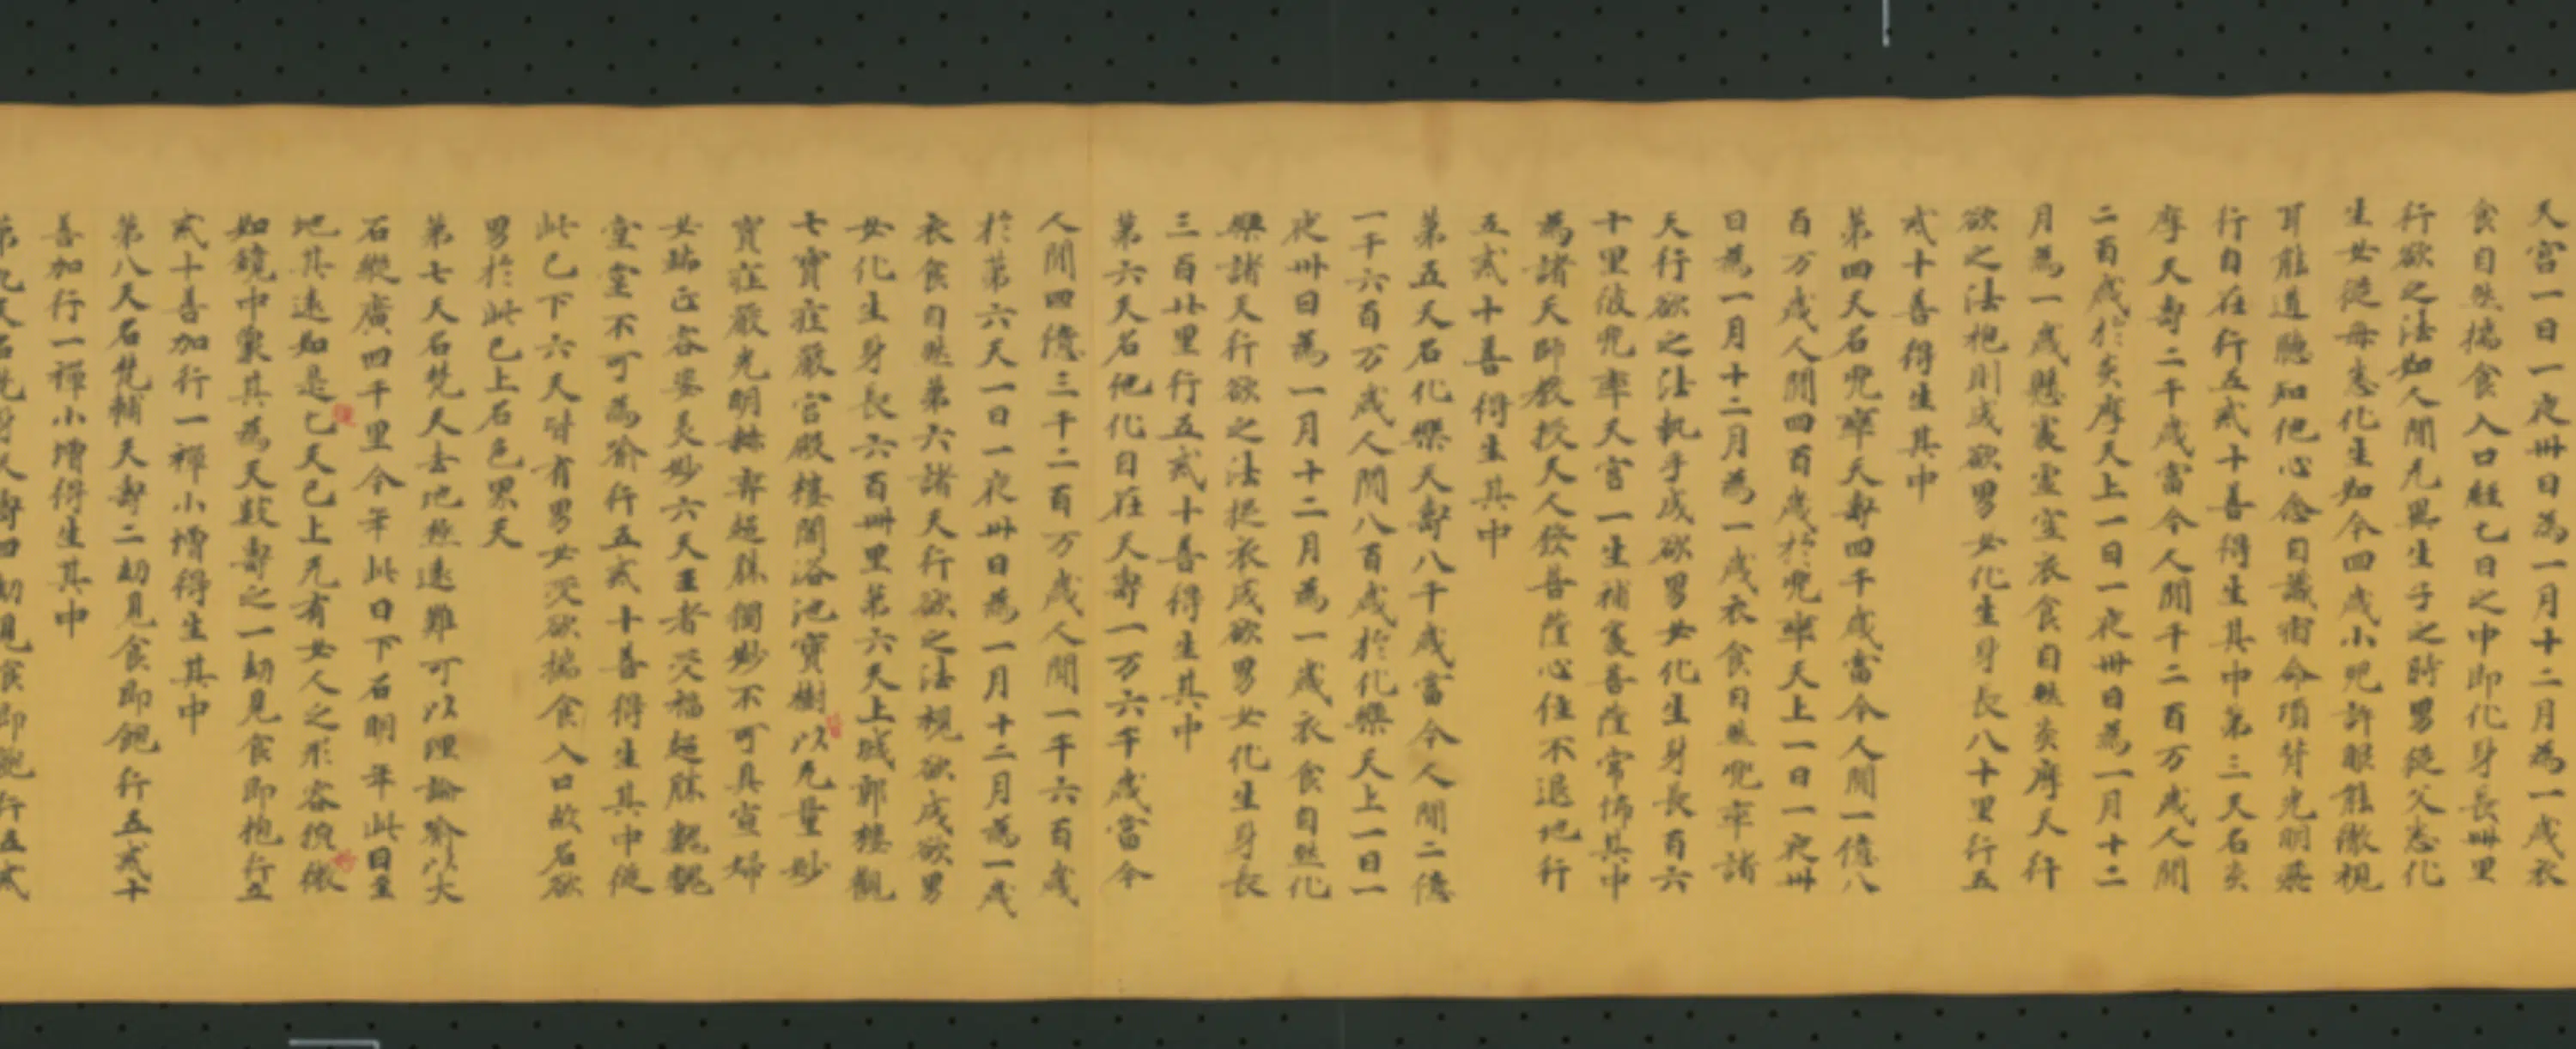 天宮一日一夜卅日為一月十二月為一歲衣
食自然揣食入口經七日之中即化身長卌里
行欲之法如人間无異生子之時男從父志化
生女從母志化生如今四歲小兒許眼能徹視
耳能道聽知他心念自識宿命項背光明飛
行自在行五戒十善得生其中第三天名炎
摩天壽二千歲當今人間千二百万歲人間
二百歲於炎摩天上一日一夜卅日為一月十二
月為一歲懸處虛空衣食自然炎摩天行
欲之法抱則成欲男女化生身長八十里行五
戒十善得生其中
第四天名兜率天壽四千歲當今人間一億八
百万歲人間四百歲於兜率天上一日一夜卅
日為一月十二月為一歲衣食自然兜率諸
天行欲之法執手成欲男女化生身長百六
十里彼兜率天宮一生補處菩薩常怖其中
為諸天師教授天人發菩薩心住不退地行
五戒十善得生其中
第五天名化樂天壽八千歲當今人間二億
一千六百万歲人間八百歲於化樂天上一日一
夜卅日為一月十二月為一歲衣食自然化
樂諸天行欲之法捉衣成欲男女化生身長
三百廿里行五戒十善得生其中
第六天名他化自在天壽一万六千歲當今
人間四億三千二百万歲人間一千六百歲
於第六天一日一夜卅日為一月十二月為一歲
衣食自然第六諸天行欲之法視欲成欲男
女化生身長六百卌里第六天上城郭樓觀
七寶莊嚴宮殿樓閣浴池寶樹以无量妙
寶莊嚴光明赫弈超殊獨妙不可具宣婦
女端正容姿美妙六天王者受福超殊巍巍
堂堂不可為喻行五戒十善得生其中從
此已下六天皆有男女受欲揣食入口故名欲
男於此已上名色界天
第七天名梵天去地懸遠難可以理論喻以大
石縱廣四千里今年此日下石明年此日至
地其遠如是七天已上无有女人之形容貌徹
如鏡中像其為天數壽之一劫見食即抱行五
戒十善加行一禪小增得生其中
第八天名梵輔天壽二劫見食即飽行五戒十
善加行一禪小增得生其中
第九天名梵身天壽四劫見食即飽行五戒